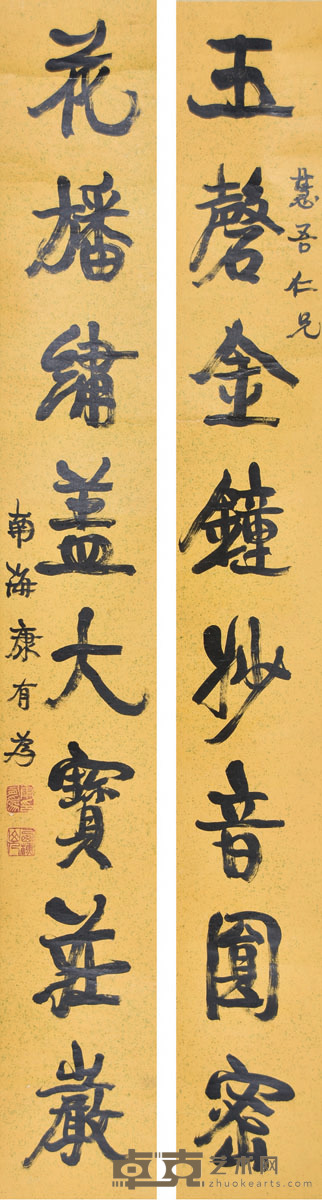 玉磬金鐘妙音圓密
慧吾仁兄
花旛繡蓋大寶莊嚴
南海康有為
卓克艺术网
zhuokearts.com